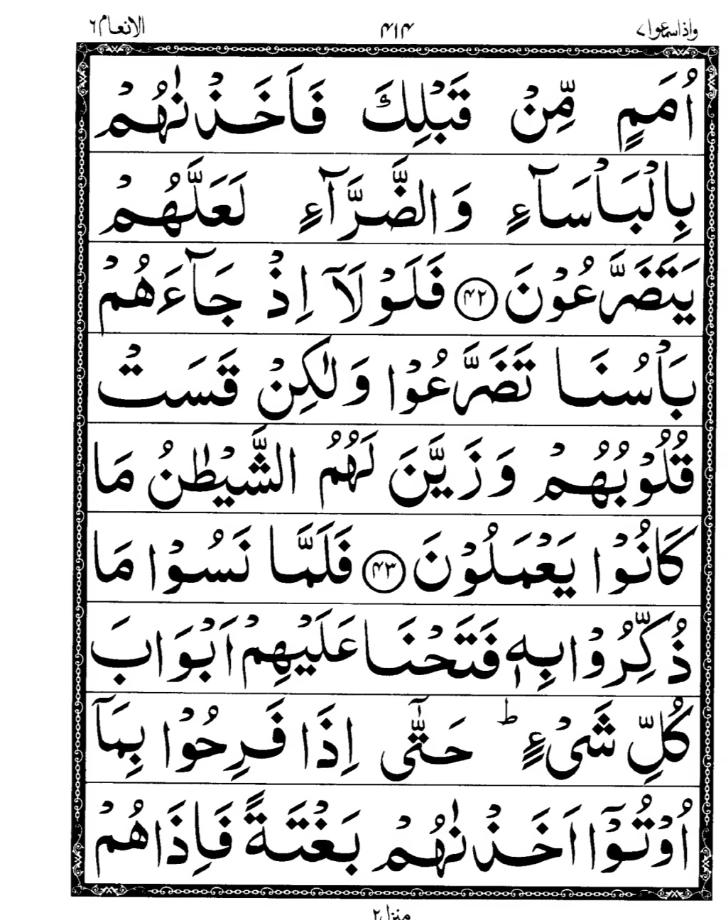 واذاسمعوا٧ ۴۱۴ الانعام٦
اُمَمٍ مِّنۡ قَبۡلِكَ فَاَخَذۡنٰهُمۡ
بِالۡبَاۡسَآءِ وَالضَّرَّآءِ لَعَلَّهُمۡ
يَتَضَرَّعُوۡنَ ﴿۴۲﴾ فَلَوۡلَاۤ اِذۡ جَآءَهُمۡ
بَاۡسُنَا تَضَرَّعُوۡا وَلٰكِنۡ قَسَتۡ
قُلُوۡبُهُمۡ وَزَيَّنَ لَهُمُ الشَّيۡطٰنُ مَا
كَانُوۡا يَعۡمَلُوۡنَ ﴿۴۳﴾ فَلَمَّا نَسُوۡا مَا
ذُكِّرُوۡا بِهٖ فَتَحۡنَا عَلَيۡهِمۡ اَبۡوَابَ
كُلِّ شَىۡءٍ ؕ حَتّٰٓى اِذَا فَرِحُوۡا بِمَاۤ
اُوۡتُوۡۤا اَخَذۡنٰهُمۡ بَغۡتَةً فَاِذَا هُمۡ
منزل۲